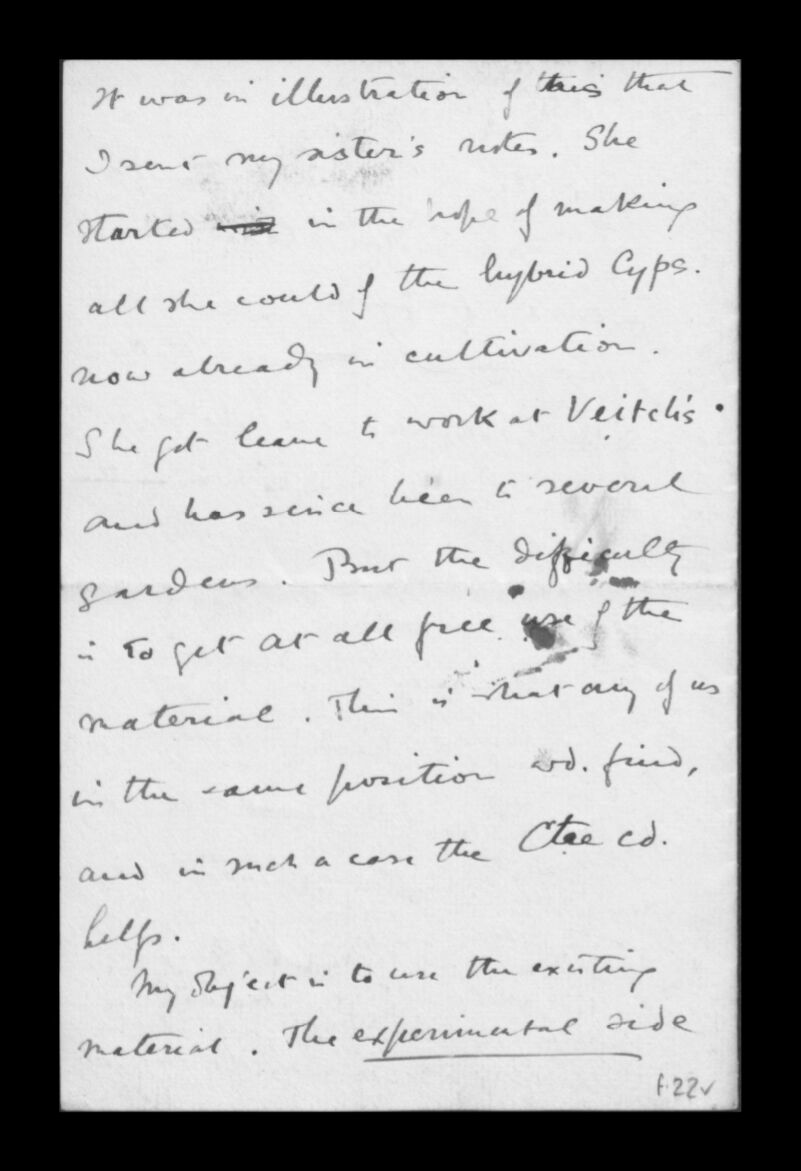 It was in illustration of this that
I sent my sister's notes. She
started in the hope of making
all she could of the hybrid Cyps.
now already in cultivation.
She got leave to work at Veitch's.
and has since been to several
gardens. But the difficulty
is to get at all free use of the
material. This is what any of us
in the same position wd. find,
and in such a case the Ctee cd.
help.
My object is to use the existing
material. The experimental side
f.22v